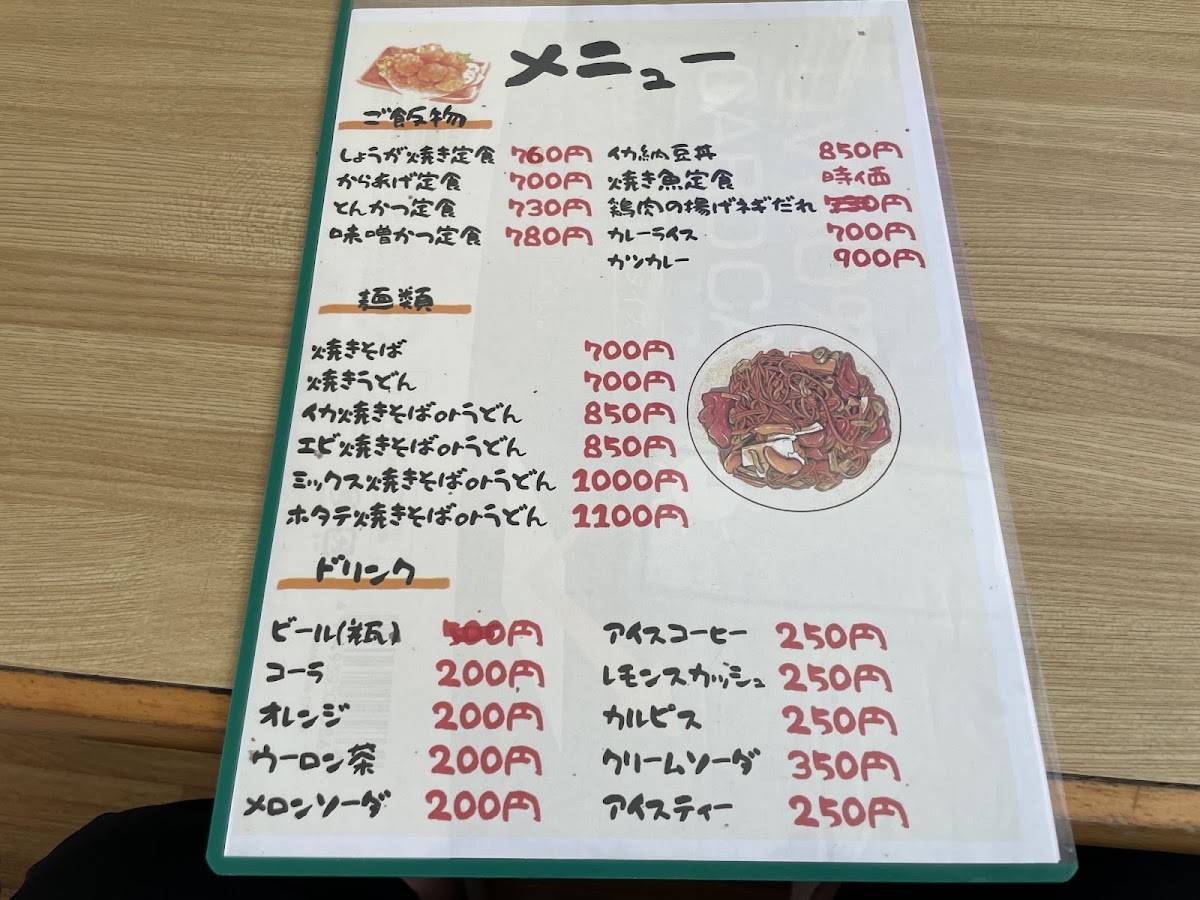 メニュー
ご飯物
しょうが焼き定食 760円
からあげ定食 700円
とんかつ定食 730円
味噌かつ定食 780円
イカ納豆丼 850円
焼き魚定食 時価
鶏肉の揚げネギだれ 円
カレーライス 700円
カツカレー 900円
麺類
焼きそば 700円
焼きうどん 700円
イカ焼きそばorうどん 850円
エビ焼きそばorうどん 850円
ミックス焼きそばorうどん 1000円
ホタテ焼きそばorうどん 1100円
ドリンク
ビール(瓶) 円
コーラ 200円
オレンジ 200円
ウーロン茶 200円
メロンソーダ 200円
アイスコーヒー 250円
レモンスカッシュ 250円
カルピス 250円
クリームソーダ 350円
アイスティー 250円